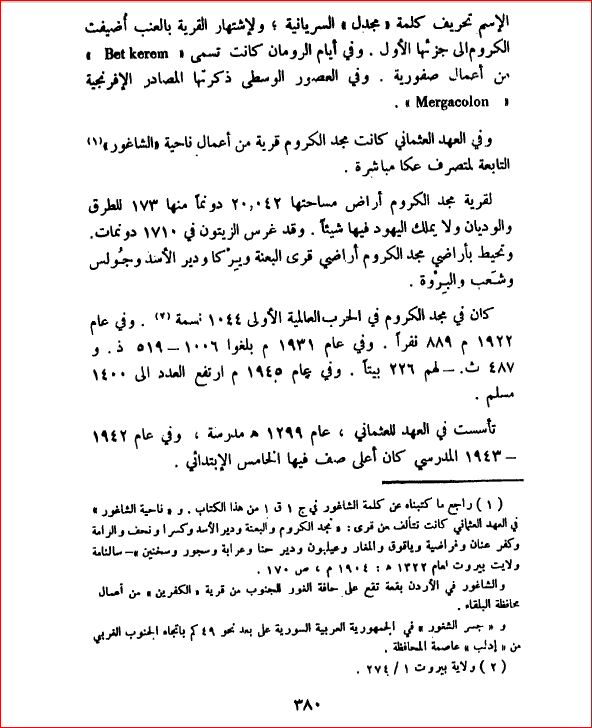 الإسم تحريف كلمة « مجدل » السريانية ؛ ولإشتهار القرية بالعنب أُضيفت
الكروم الى جزئها الأول . وفي أيام الرومان كانت تسمى « Bet kerem »
من أعمال صفورية . وفي العصور الوسطى ذكرتها المصادر الإفرنجية
« Mergacolon » .
وفي العهد العثماني كانت مجد الكروم قرية من أعمال ناحية «الشاغور»(١)
التابعة لمتصرف عكا مباشرة .
لقرية مجد الكروم أراض مساحتها ٢٠,٠٤٢ دونماً منها ١٧٣ للطرق
والوديان ولا يملك اليهود فيها شيئاً . وقد غرس الزيتون في ١٧١٠ دونمات.
وتحيط بأراضي مجد الكروم أراضي قرى البعنة ويِرْكا ودير الأسد وجُولس
وشَعب والبِرْوة .
كان في مجد الكروم في الحرب العالمية الأولى ١٠٤٤ نسمة (٢) . وفي عام
١٩٢٢ م ٨٨٩ نفراً . وفي عام ١٩٣١ م بلغوا ١٠٠٦ – ٥١٩ ذ. و
٤٨٧ ث. – لهم ٢٢٦ بيتاً . وفي عام ١٩٤٥ م ارتفع العدد الى ١٤٠٠
مسلم .
تأسست في العهد للعثماني ، عام ١٢٩٩ ه مدرسة ، وفي عام ١٩٤٢
– ١٩٤٣ المدرسي كان أعلى صف فيها الخامس الإبتدائي .
( ١ ) راجع ما كتبناه عن كلمة الشاغور في ج ١ ق ١ من هذا الكتاب . و « ناحية الشاغور »
في العهد العثماني كانت تتألف من قرى : « مجد الكروم والبعنة ودير الأسد وكسرا ونحف والرامة
وكفر عنان وفراضية وياقوق والمغار وعيلبون ودير حنا وعرابة وسجور وسخنين » – سالنامة
ولايت بيروت لعام ١٣٢٢ ه : ١٩٠٤ م ، ص ١٧٠ .
والشاغور في الأردن بقعة تقع على حافة الغور للجنوب من قرية « الكفرين » من أعمال
محافظة البلقاء .
و « جسر الشغور » في الجمهورية العربية السورية على بعد نحو ٤٩ كم باتجاه الجنوب الغربي
من « إدلب » عاصمة المحافظة .
( ٢ ) ولاية بيروت ١ / ٢٧٤ .
٣٨٠